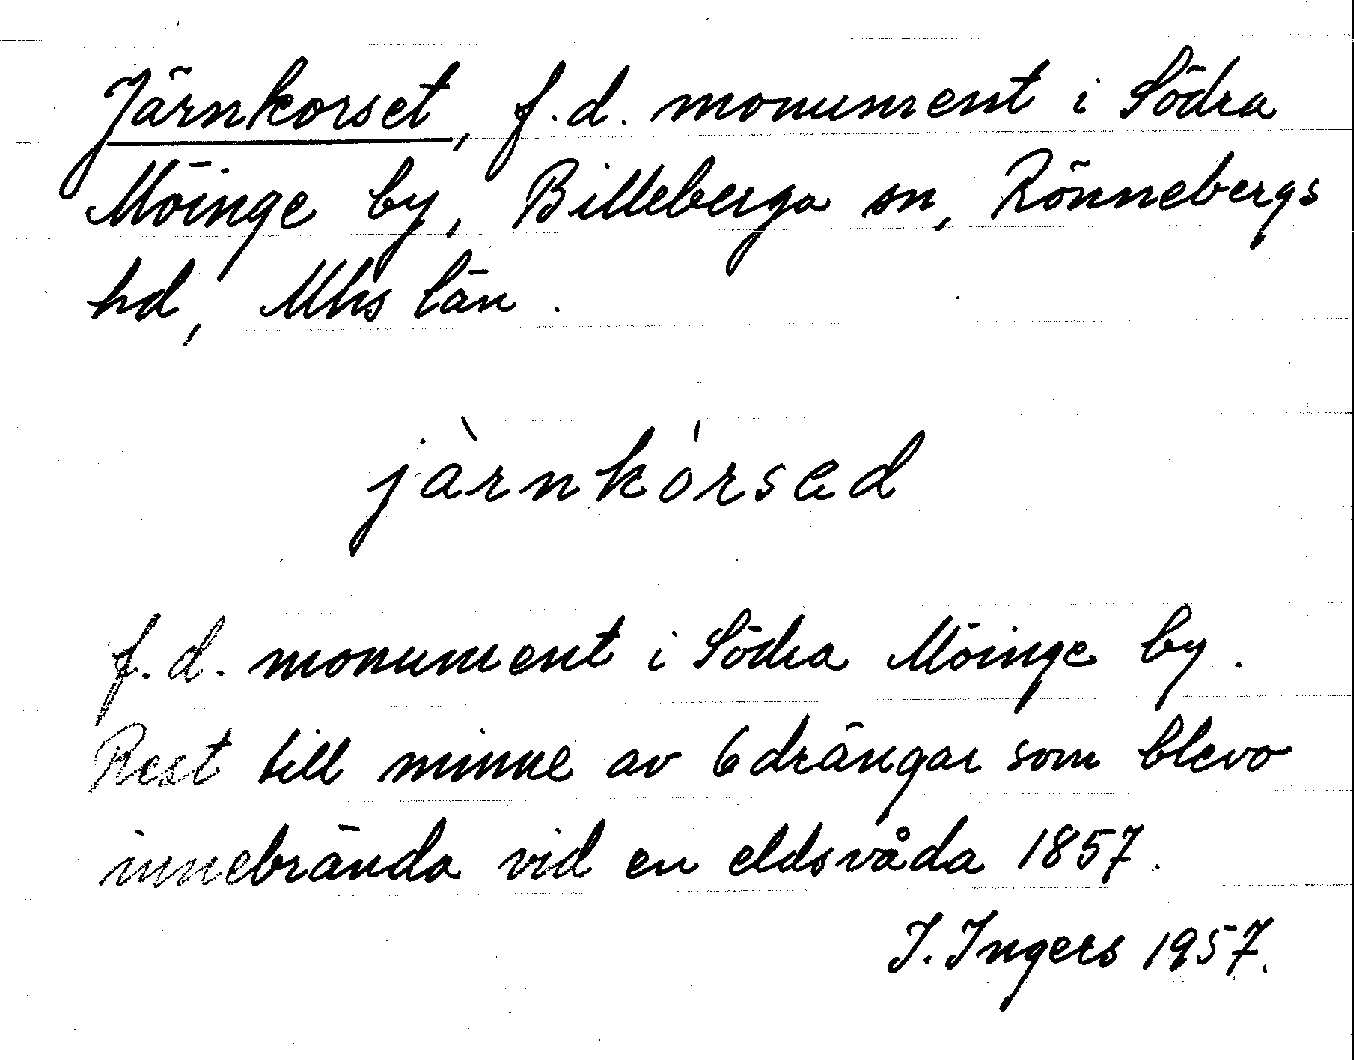 Järnkorset, f.d. monument i Södra
Möinge by, Billeberga sn, Rönnebergs
hd, Mhs län.
jàrnkórsad
f.d. monument i Södra Möinge by.
Rest till minne av 6 drängar som blevo
innebrända vid en eldsvåda 1857.
I. Ingers 1957.